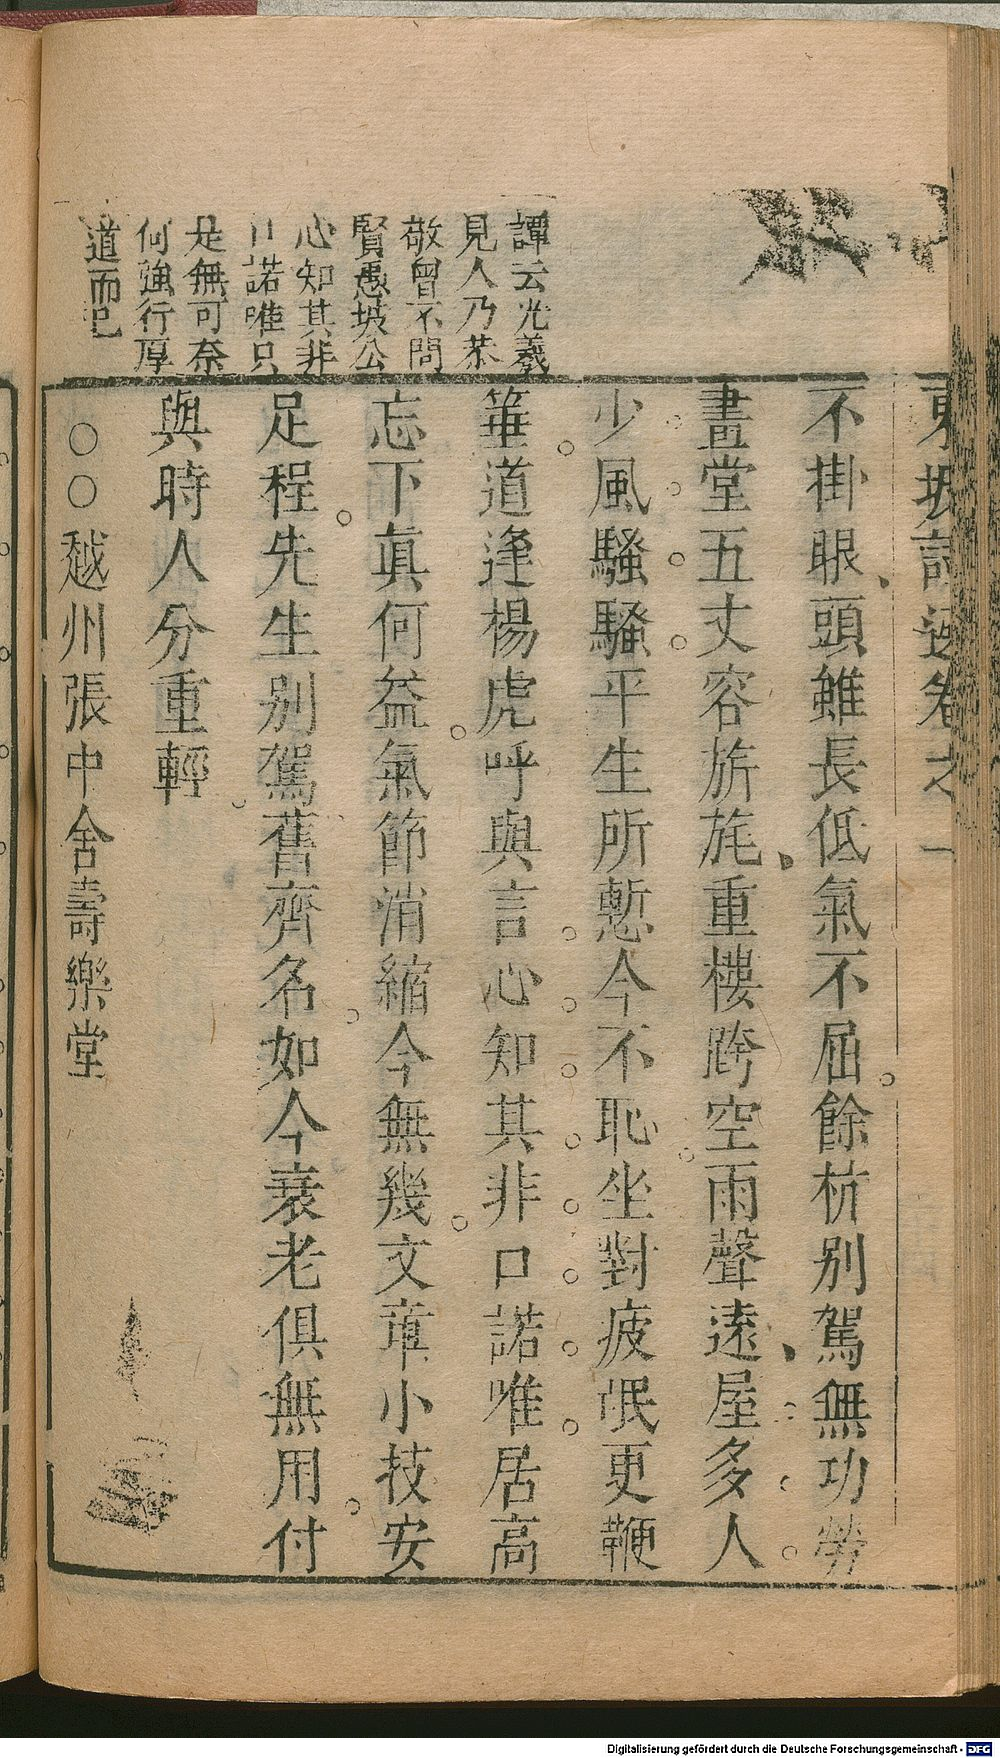 東坡詩選卷之一
不掛眼頭雖長低氣不屈餘杭別駕無功勞
畫堂五丈容旂旄重樓跨空雨聲遠屋多人
少風騷騷平生所慙今不恥坐對疲氓更鞭
箠道逢楊虎呼與言心知其非口諾唯居高
忘下眞何益氣節消縮今無幾文章小技安
足程先生別駕舊齊名如今衰老俱無用付
與時人分重輕
○○越州張中舍壽樂堂
譚云光羲
見人乃恭
敬曾不問
賢愚坡公
心知其非
口諾唯只
是無可奈
何強行厚
道而已
Digitalisierung gefördert durch die Deutsche Forschungsgemeinschaft - DFG